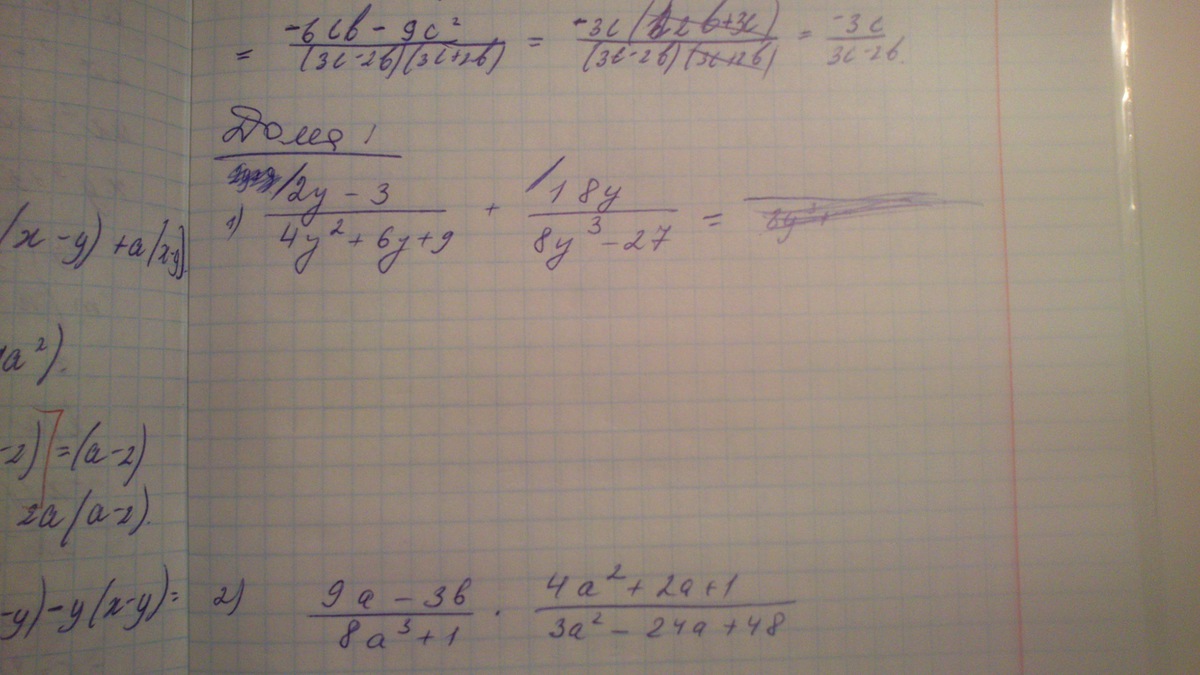 = (-6cb - 9c²)/((3c-2b)(3c+2b)) = -3c(2b+3c)/((3c-2b)(3c+2b)) = -3c/(3c-2b).
Дома!
1) (2y - 3)/(4y² + 6y + 9) + 18y/(8y³ - 27) =
(x - y) + a(x-y).
a²).
-2) = (a-2)
2a(a-2).
-y) - y(x-y) =
2) (9a - 3b)/(8a³ + 1) · (4a² + 2a + 1)/(3a² - 24a + 48)